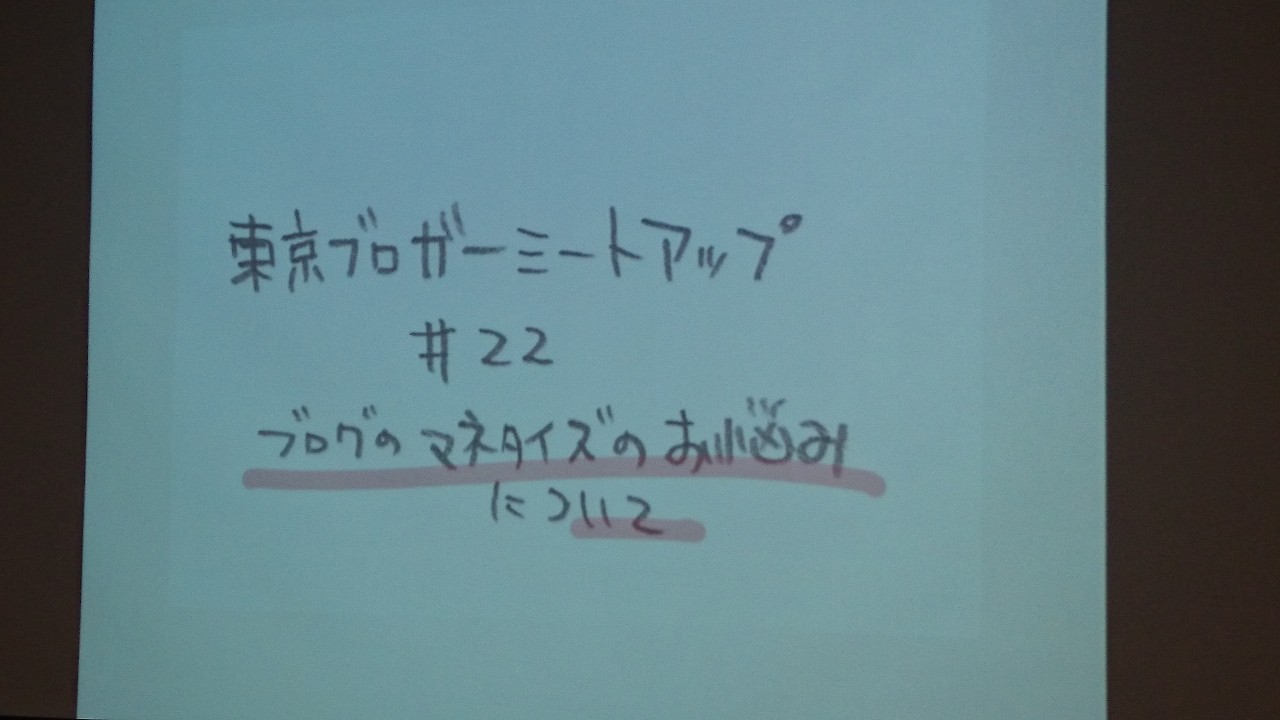 東京ブロガーミートアップ
#22
ブログのマネタイズのお悩み
について